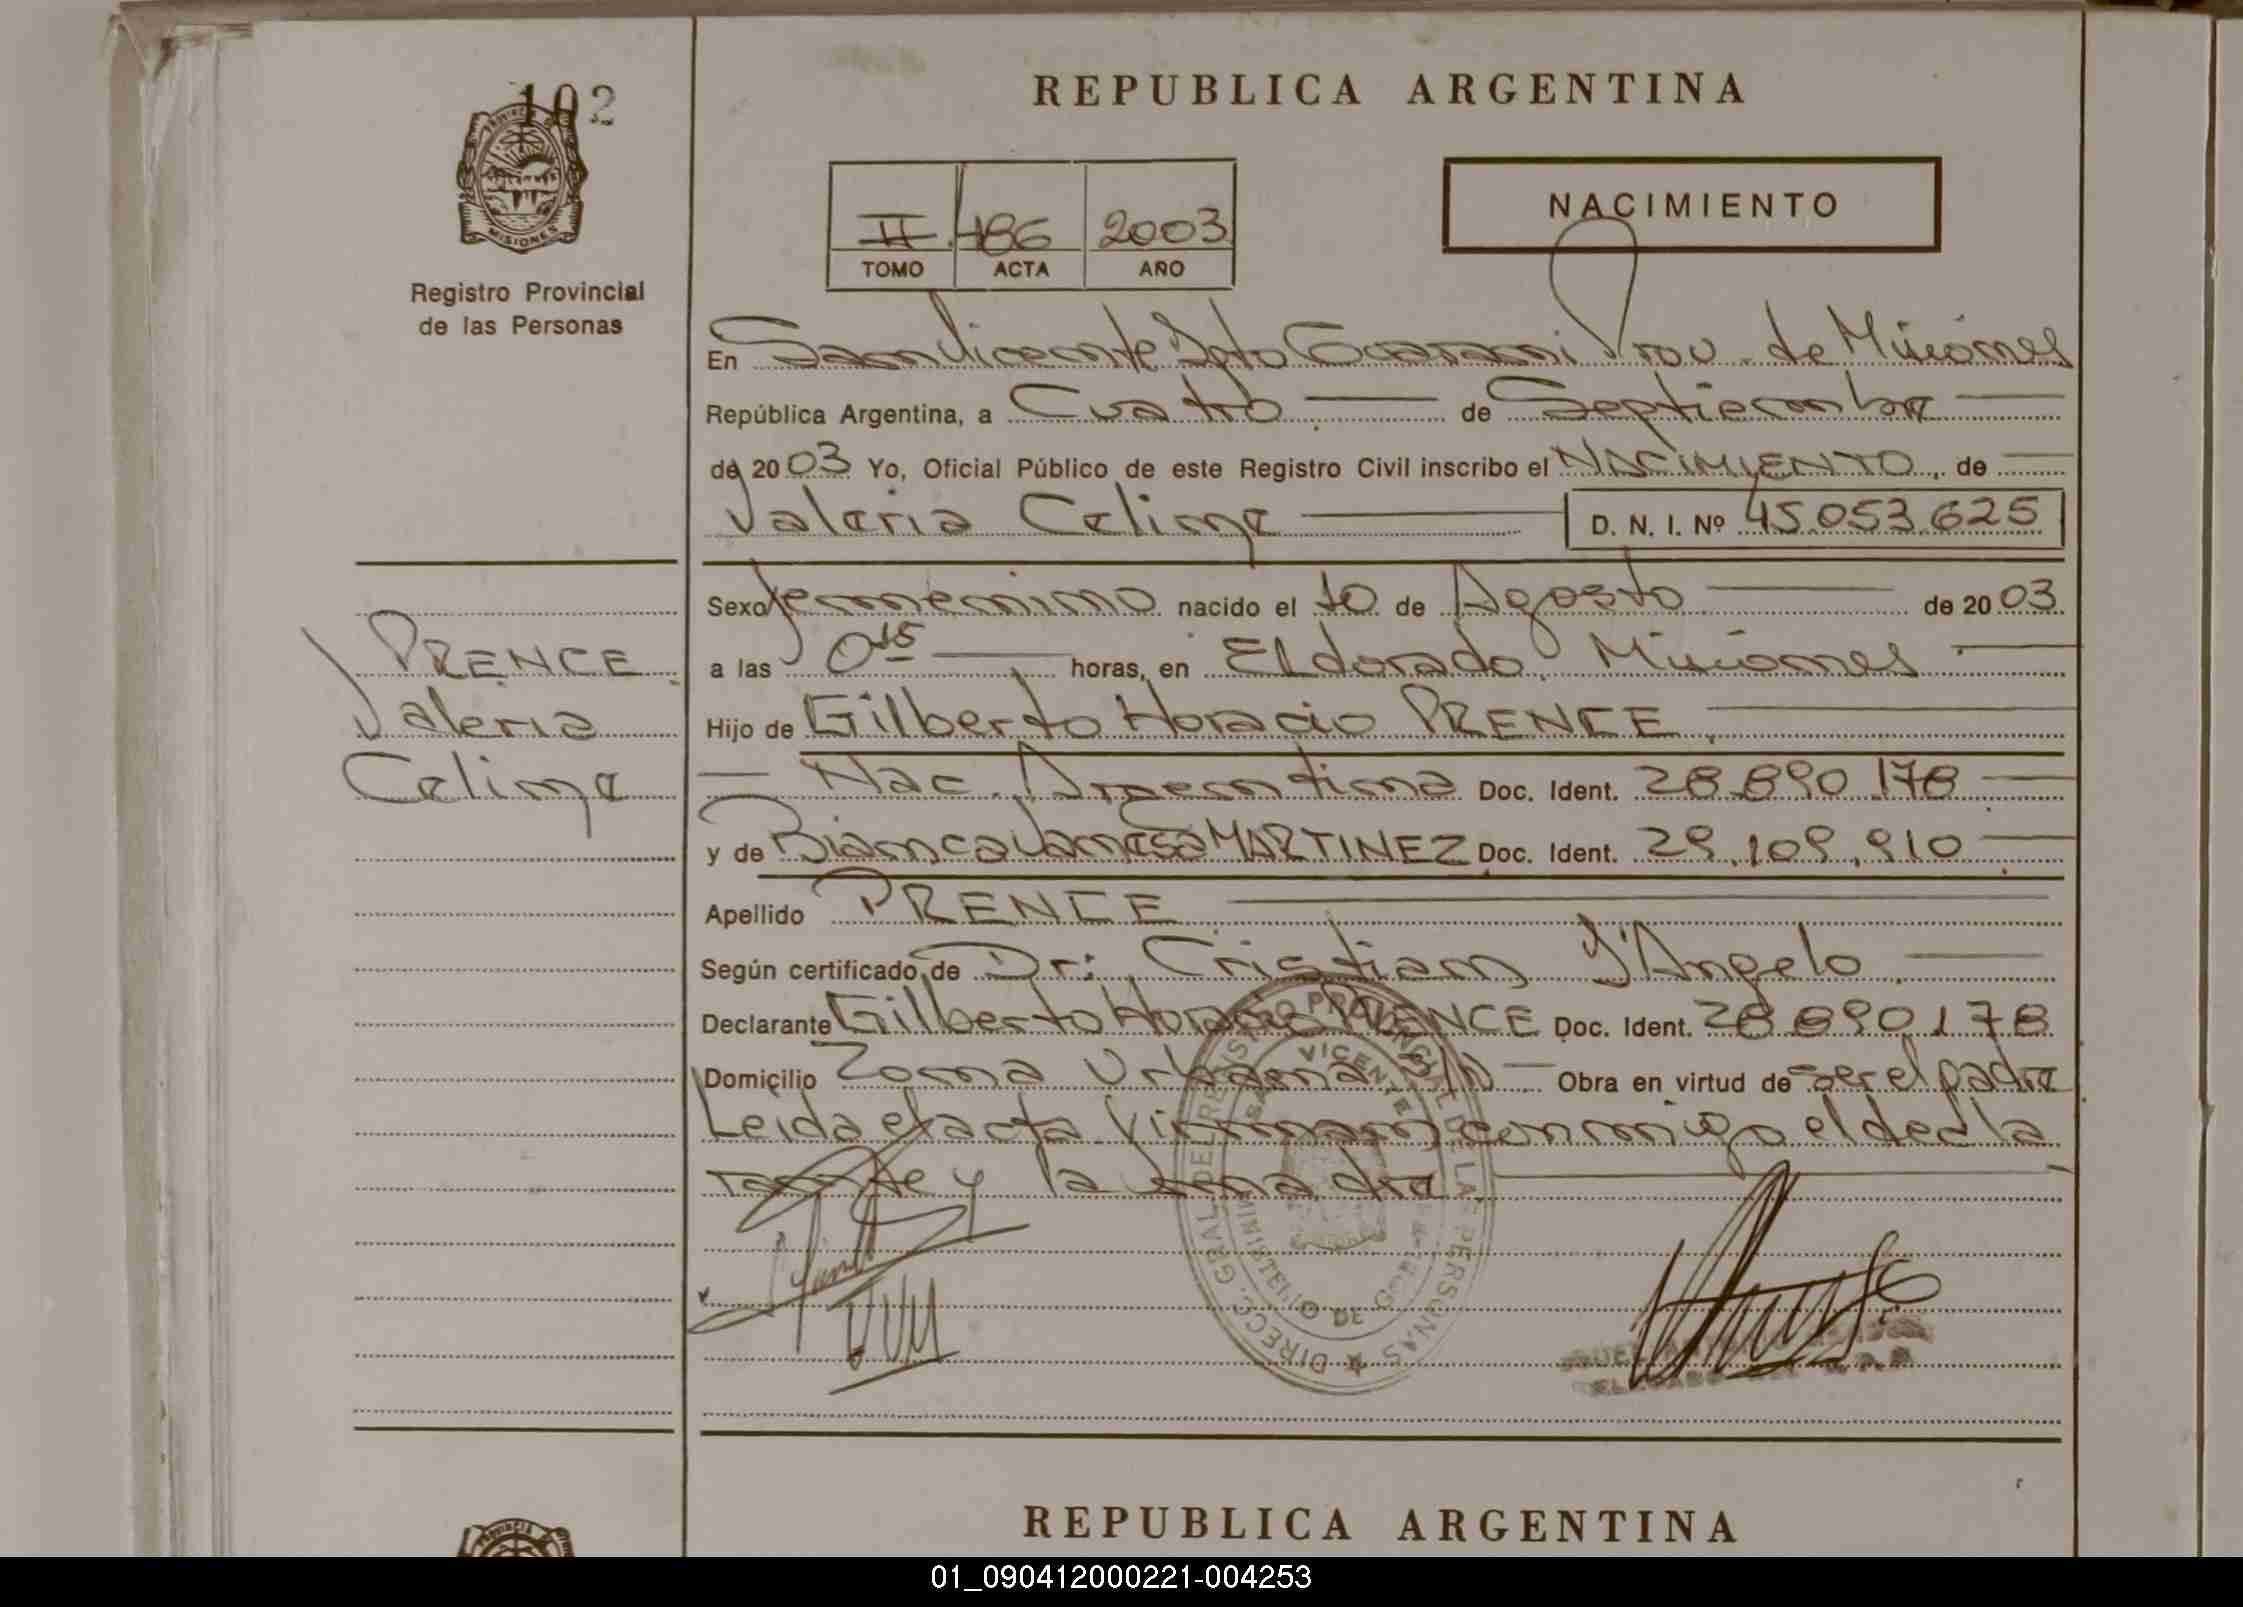 102
PROVINCIA DE
MISIONES
Registro Provincial
de las Personas
REPUBLICA ARGENTINA
NACIMIENTO
II 186 2003
TOMO ACTA AÑO
En San Vicente Dpto Guarani Prov. de Misiones
República Argentina, a Cuatro de Septiembre
de 2003 Yo, Oficial Público de este Registro Civil inscribo el NACIMIENTO, de
Valeria Celine D. N. I. Nº 45.053.625
Sexo femenino nacido el 10 de Agosto de 2003
a las 0 15 horas, en Eldorado, Misiones
Hijo de Gilberto Horacio PRENCE
Nac. Argentina Doc. Ident. 28.890.178
y de Bianca Vanesa MARTINEZ Doc. Ident. 29.109.910
Apellido PRENCE
Según certificado de Dr: Cristian D'Angelo
Declarante Gilberto Horacio PRENCE Doc. Ident. 28.890.178
Domicilio Zona Urbana S/N Obra en virtud de ser el padre
Leida el acta firman conmigo el decla
rante y la madre
PRENCE
Valeria
Celine
DIRECC. GRAL DEL REGISTRO PROVINCIAL DE LAS PERSONAS
SAN VICENTE
MINISTERIO DE GOB.
REPUBLICA ARGENTINA
PROVINCIA
01_090412000221-004253